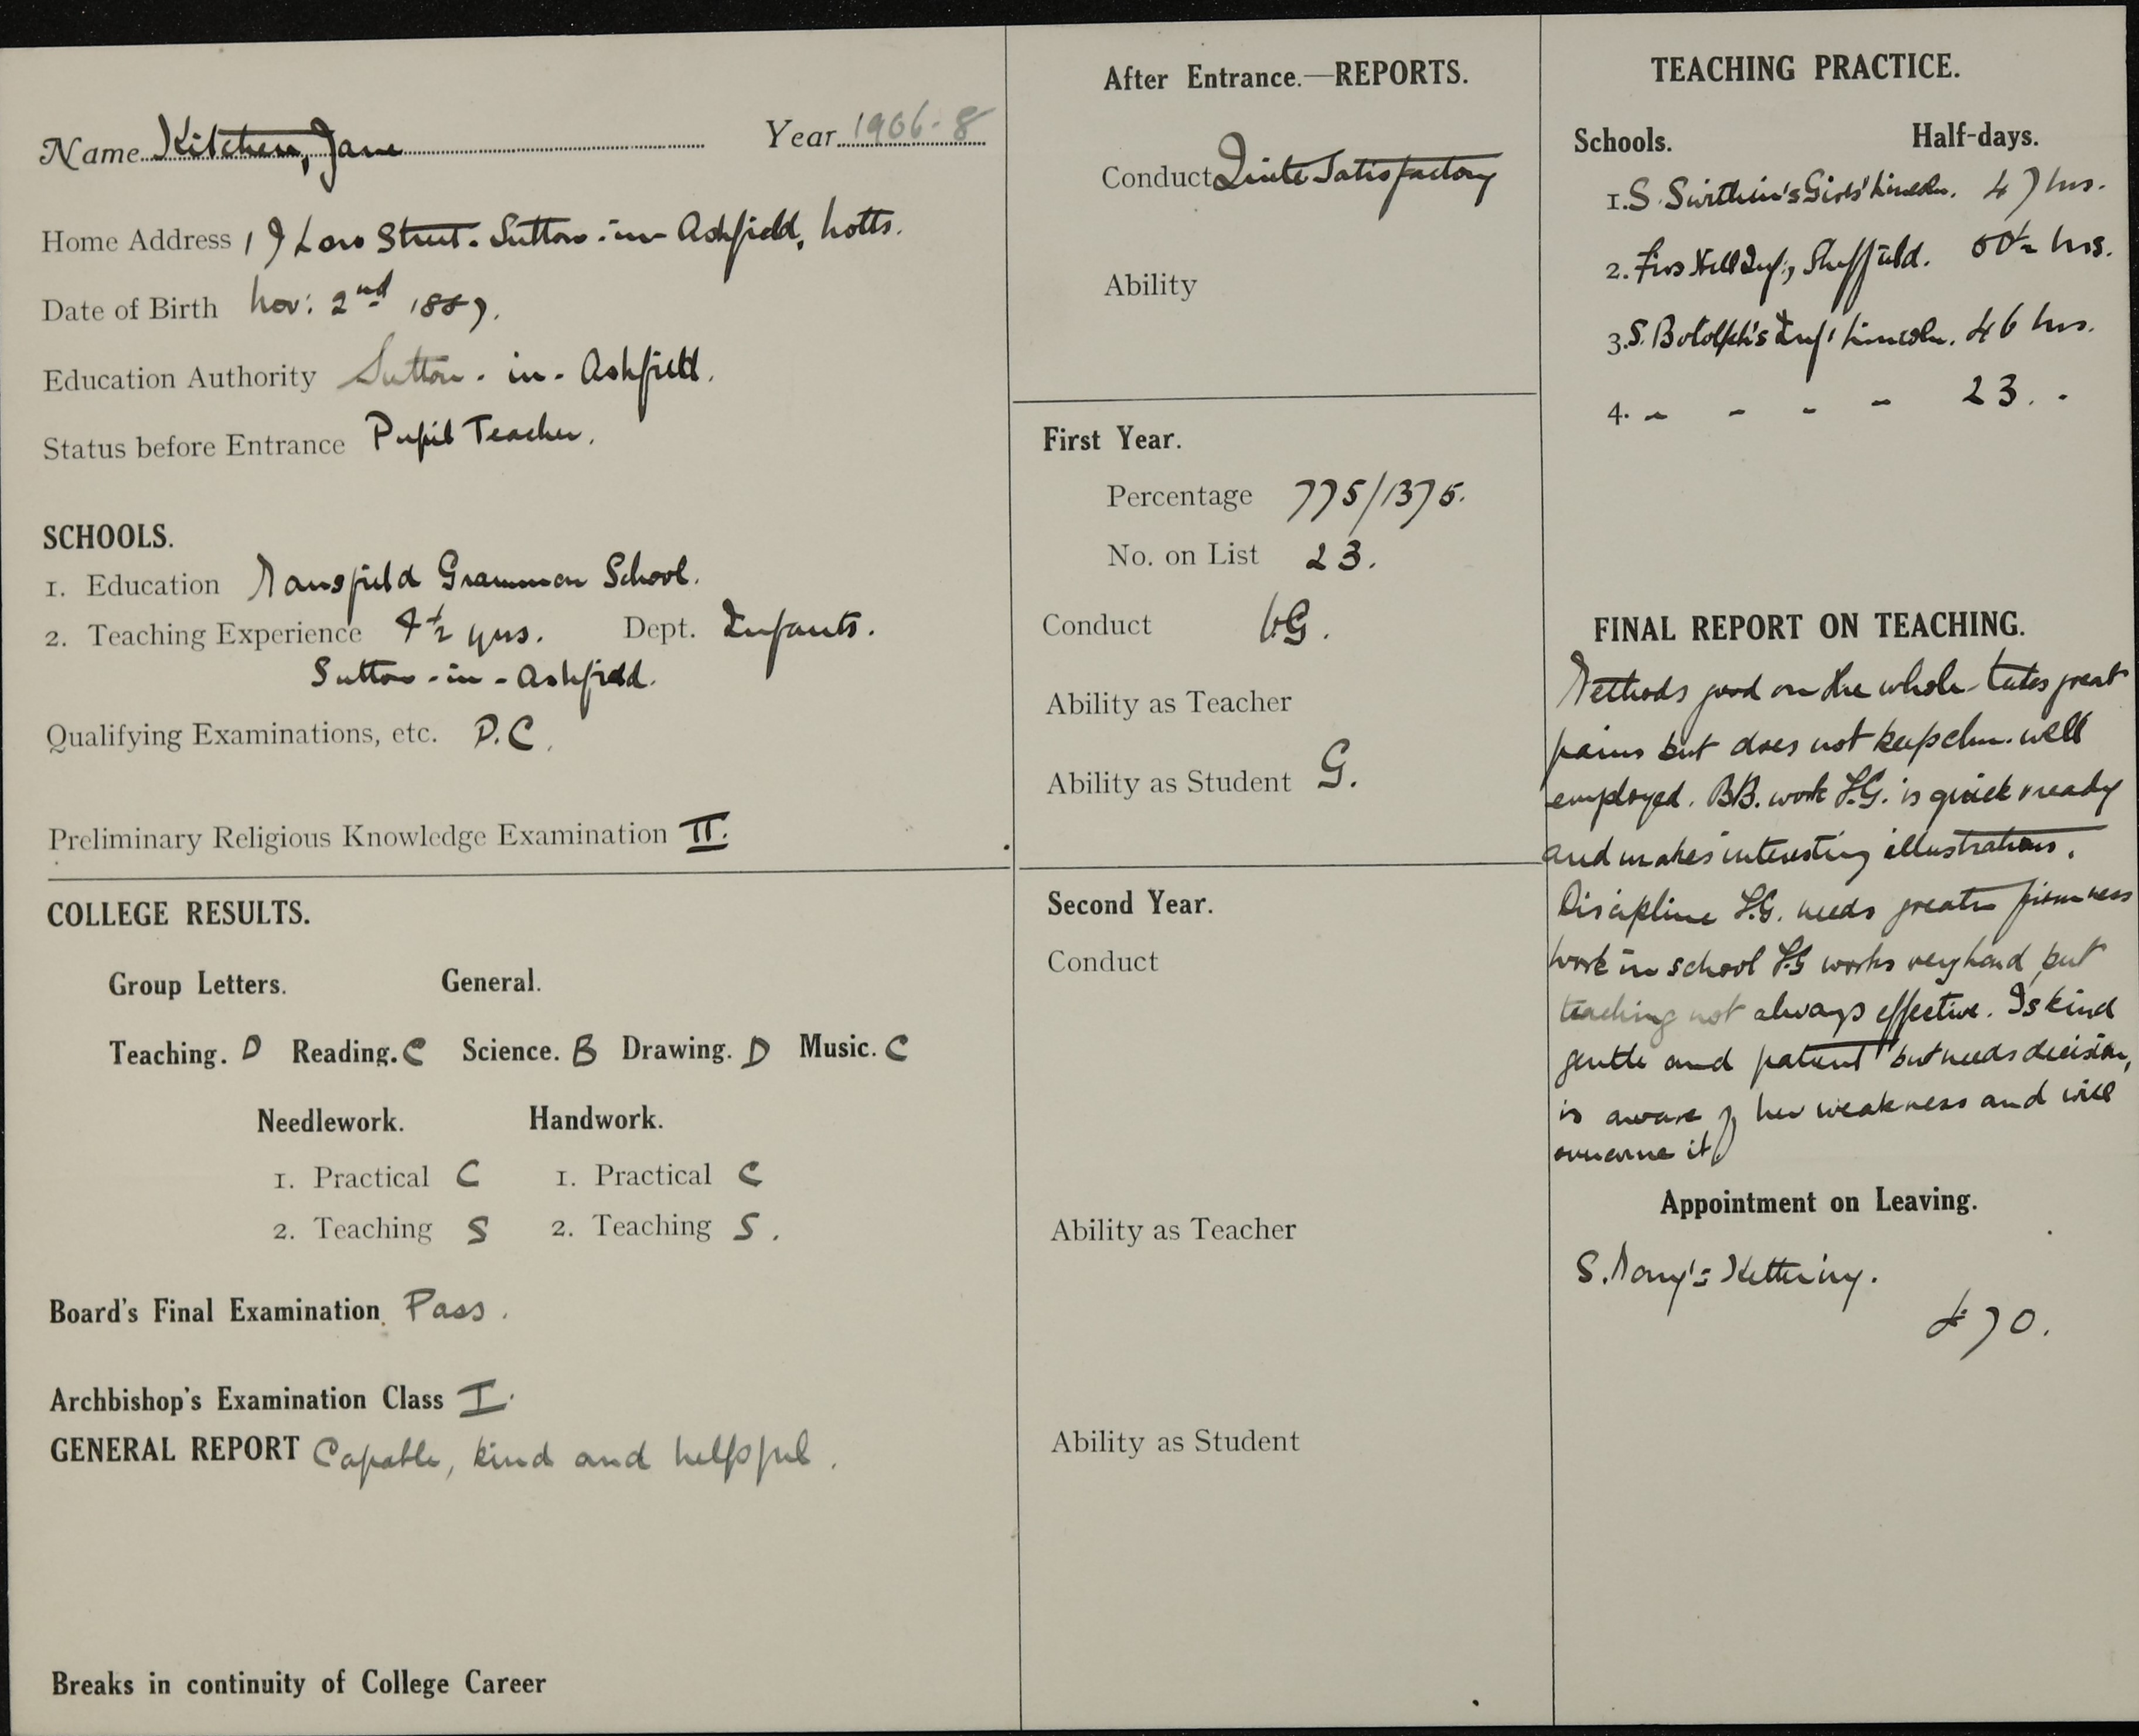 Name Kitchen, Jane Year 1906-8
Home Address 17 Low Street. Sutton-in-Ashfield, Notts.
Date of Birth Nov: 2nd 1887.
Education Authority Sutton-in-Ashfield.
Status before Entrance Pupil Teacher.
SCHOOLS.
1. Education Mansfield Grammar School.
2. Teaching Experience 4½ yrs. Dept. Infants.
Sutton-in-Ashfield.
Qualifying Examinations, etc. P.C.
Preliminary Religious Knowledge Examination II.
COLLEGE RESULTS.
Group Letters. General.
Teaching. D Reading. C Science. B Drawing. D Music. C
Needlework. Handwork.
1. Practical C 1. Practical C
2. Teaching S 2. Teaching S.
Board's Final Examination Pass.
Archbishop's Examination Class I.
GENERAL REPORT Capable, kind and helpful.
Breaks in continuity of College Career
After Entrance.—REPORTS.
Conduct Quite Satisfactory
Ability
First Year.
Percentage 775/1375.
No. on List 23.
Conduct VG.
Ability as Teacher
Ability as Student G.
Second Year.
Conduct
Ability as Teacher
Ability as Student
TEACHING PRACTICE.
Schools. Half-days.
1. S. Swithin's Girls' Lincoln. 47 hrs.
2. Firs Hill Inf:, Sheffield. hrs.
3. S. Botolph's Inf: Lincoln. 46 hrs.
4. " - - - 23. "
FINAL REPORT ON TEACHING.
Methods good on the whole - takes great
pains but does not keep chn. well
employed. BB. work F.G. is quick & ready
and makes interesting illustrations.
Discipline F.G. needs greater firmness
Work in school F.G works very hard, but
teaching not always effective. Is kind
gentle and patient but needs decision,
is aware of her weakness and will
overcome it
Appointment on Leaving.
S. Mary's Kettering.
£70.